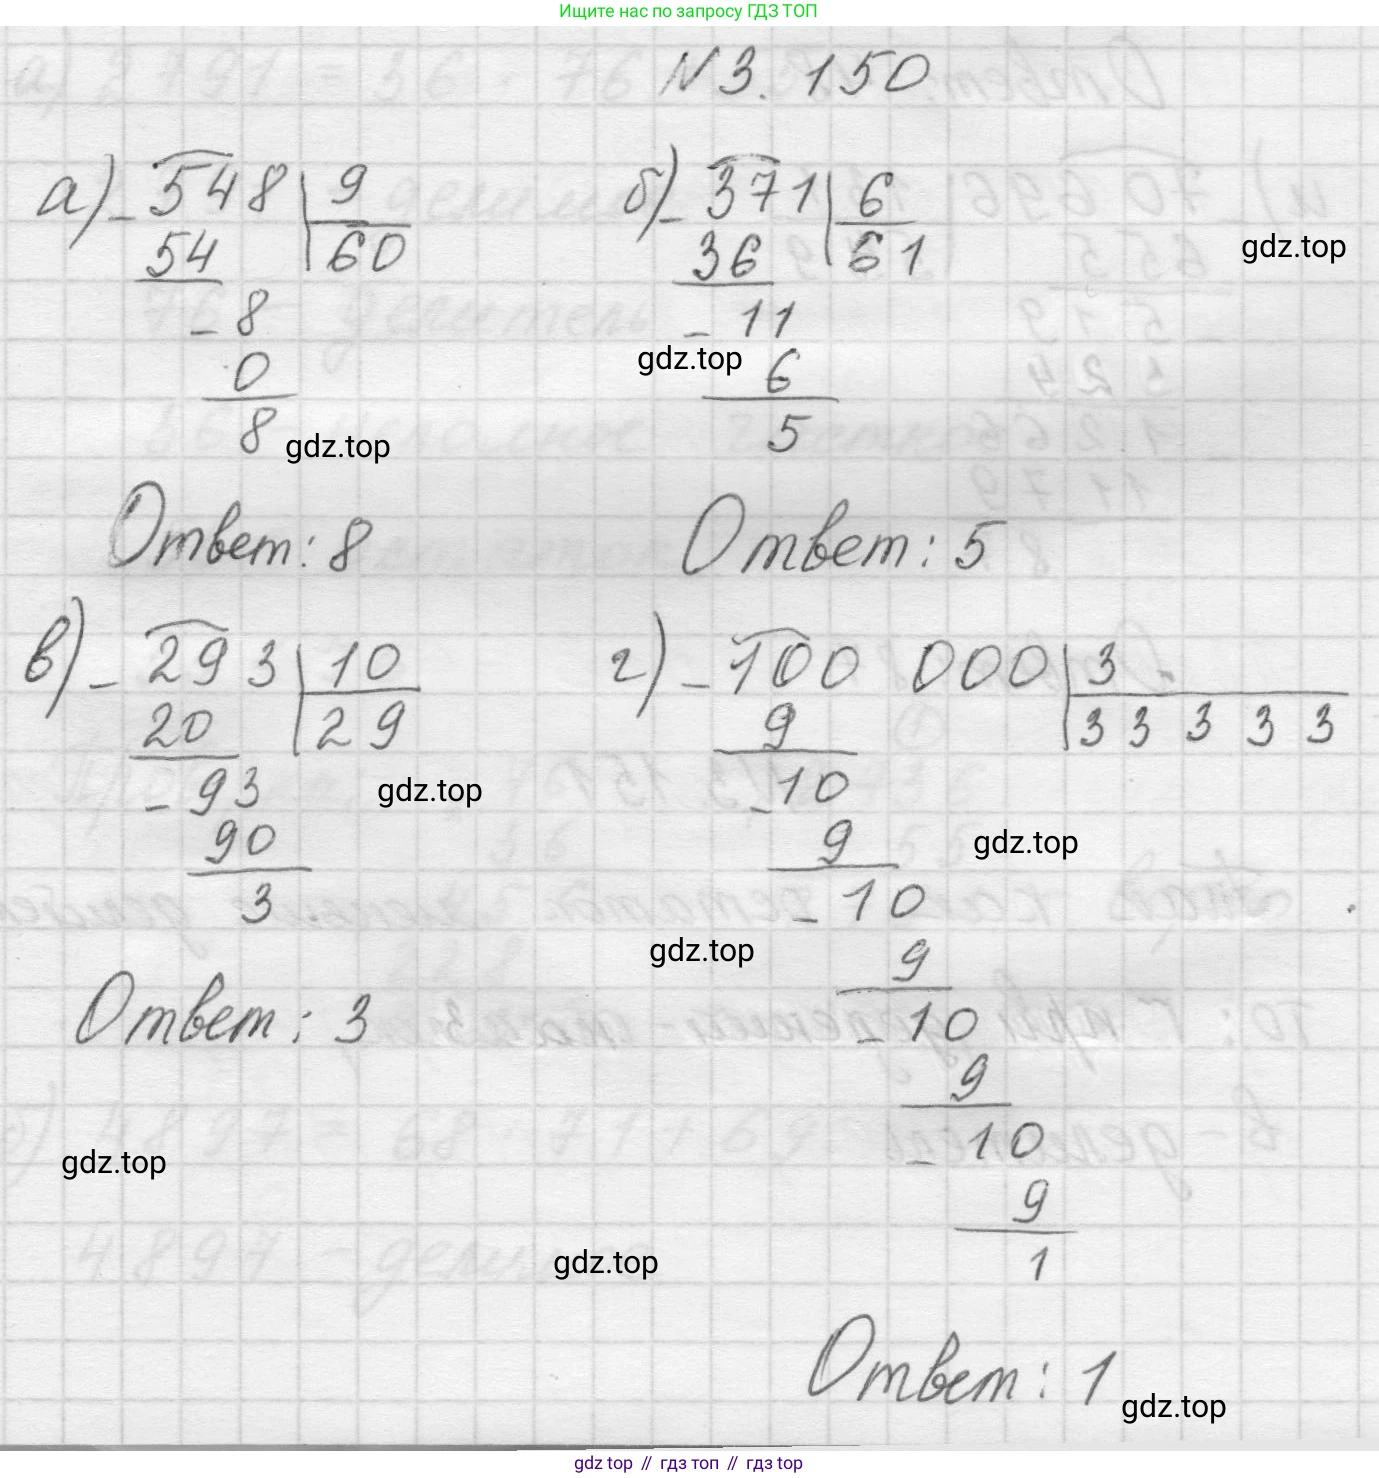 Ищите нас по запросу ГДЗ ТОП
N 3. 150
а) - 548 | 9
54 | 60
- 8
0
8
gdz.top
Ответ: 8
б) - 371 | 6
36 | 61
- 11
6
5
gdz.top
gdz.top
Ответ: 5
в) - 293 | 10
20 | 29
- 93
90
3
gdz.top
Ответ: 3
г) - 100 000 | 3
9 | 3 3 3 3 3
- 10
9
- 10
9
- 10
9
- 10
9
1
gdz.top
gdz.top
gdz.top
gdz.top
Ответ: 1
gdz.top
gdz top // гдз топ // гдз top